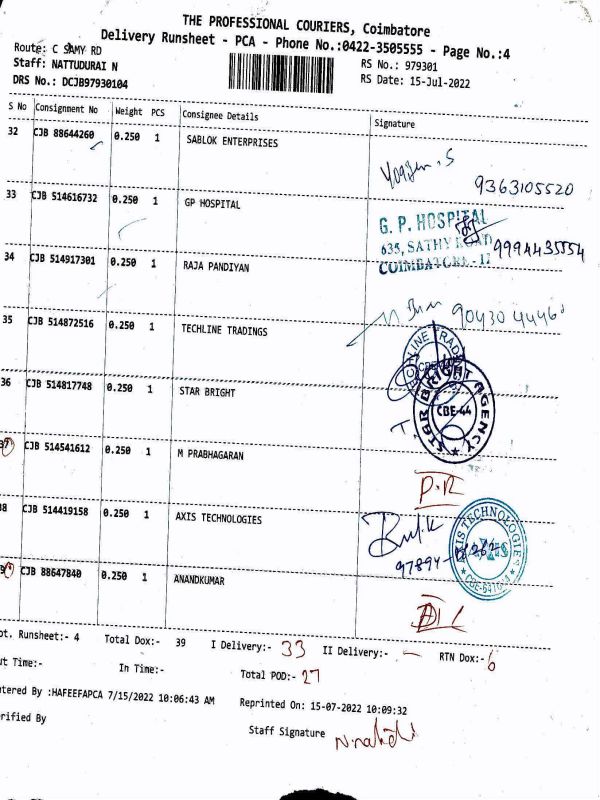 THE PROFESSIONAL COURIERS, Coimbatore
Delivery Runsheet - PCA - Phone No.:0422-3505555 - Page No.:4
Route: C SAMY RD
Staff: NATTUDURAI N
DRS No.: DCJB97930104
RS No.: 979301
RS Date: 15-Jul-2022
S No Consignment No Weight PCS Consignee Details Signature
32 CJB 88644260 0.250 1 SABLOK ENTERPRISES
9363105520
33 CJB 514616732 0.250 1 GP HOSPITAL
G. P. HOSPITAL
635, SATHY ROAD
COIMBATORE - 12
9994435554
34 CJB 514917301 0.250 1 RAJA PANDIYAN
35 CJB 514872516 0.250 1 TECHLINE TRADINGS
36 CJB 514817748 0.250 1 STAR BRIGHT
STAR BRIGHT AGENCY
CBE-44
37 CJB 514541612 0.250 1 M PRABHAGARAN
P.R
38 CJB 514419158 0.250 1 AXIS TECHNOLOGIES
AXIS TECHNOLOGIES
CJB 88647840 0.250 1 ANANDKUMAR
ot. Runsheet:- 4 Total Dox:- 39 I Delivery:- 33 II Delivery:- — RTN Dox:- 6
ut Time:- In Time:- Total POD:- 27
tered By :HAFEEFAPCA 7/15/2022 10:06:43 AM Reprinted On: 15-07-2022 10:09:32
rified By Staff Signature